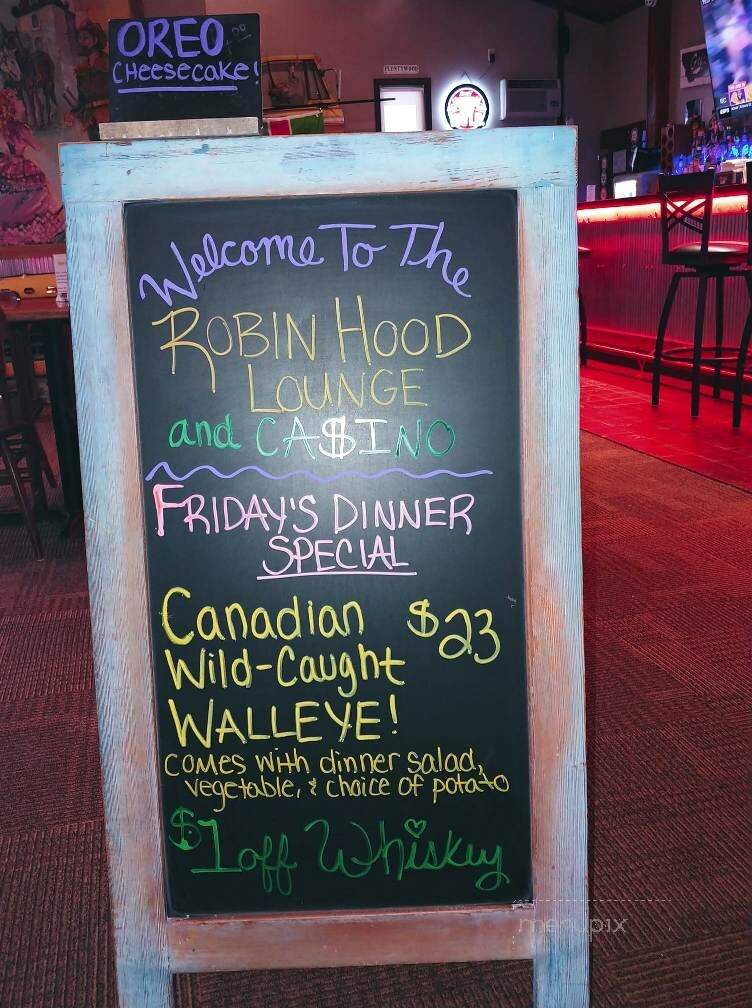 OREO
CHeesecake!
PLENTYWOOD
Welcome To The
ROBIN HOOD
LOUNGE
and CA$INO
FRIDAY'S DINNER
SPECIAL
Canadian $23
Wild-Caught
WALLEYE!
COMES WITH dinner salad,
vegetable, & choice of potato
$1 off Whiskey
menupix